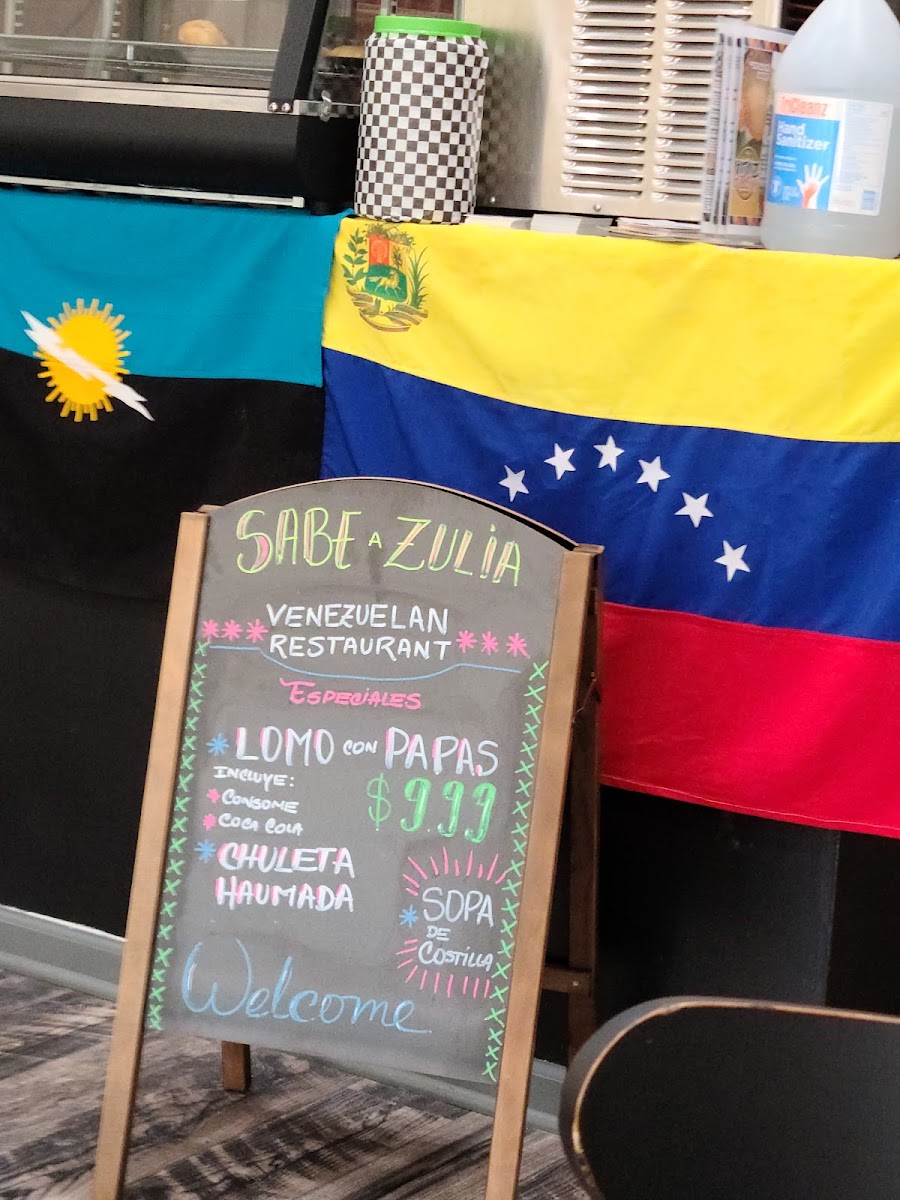 InCleanz
Hand
Sanitizer
SABE A ZULIA
VENEZUELAN
RESTAURANT
ESPECIALES
LOMO CON PAPAS
INCLUYE:
CONSOME
COCA COLA
$9.99
CHULETA
HAUMADA
SOPA
DE
COSTILLA
Welcome